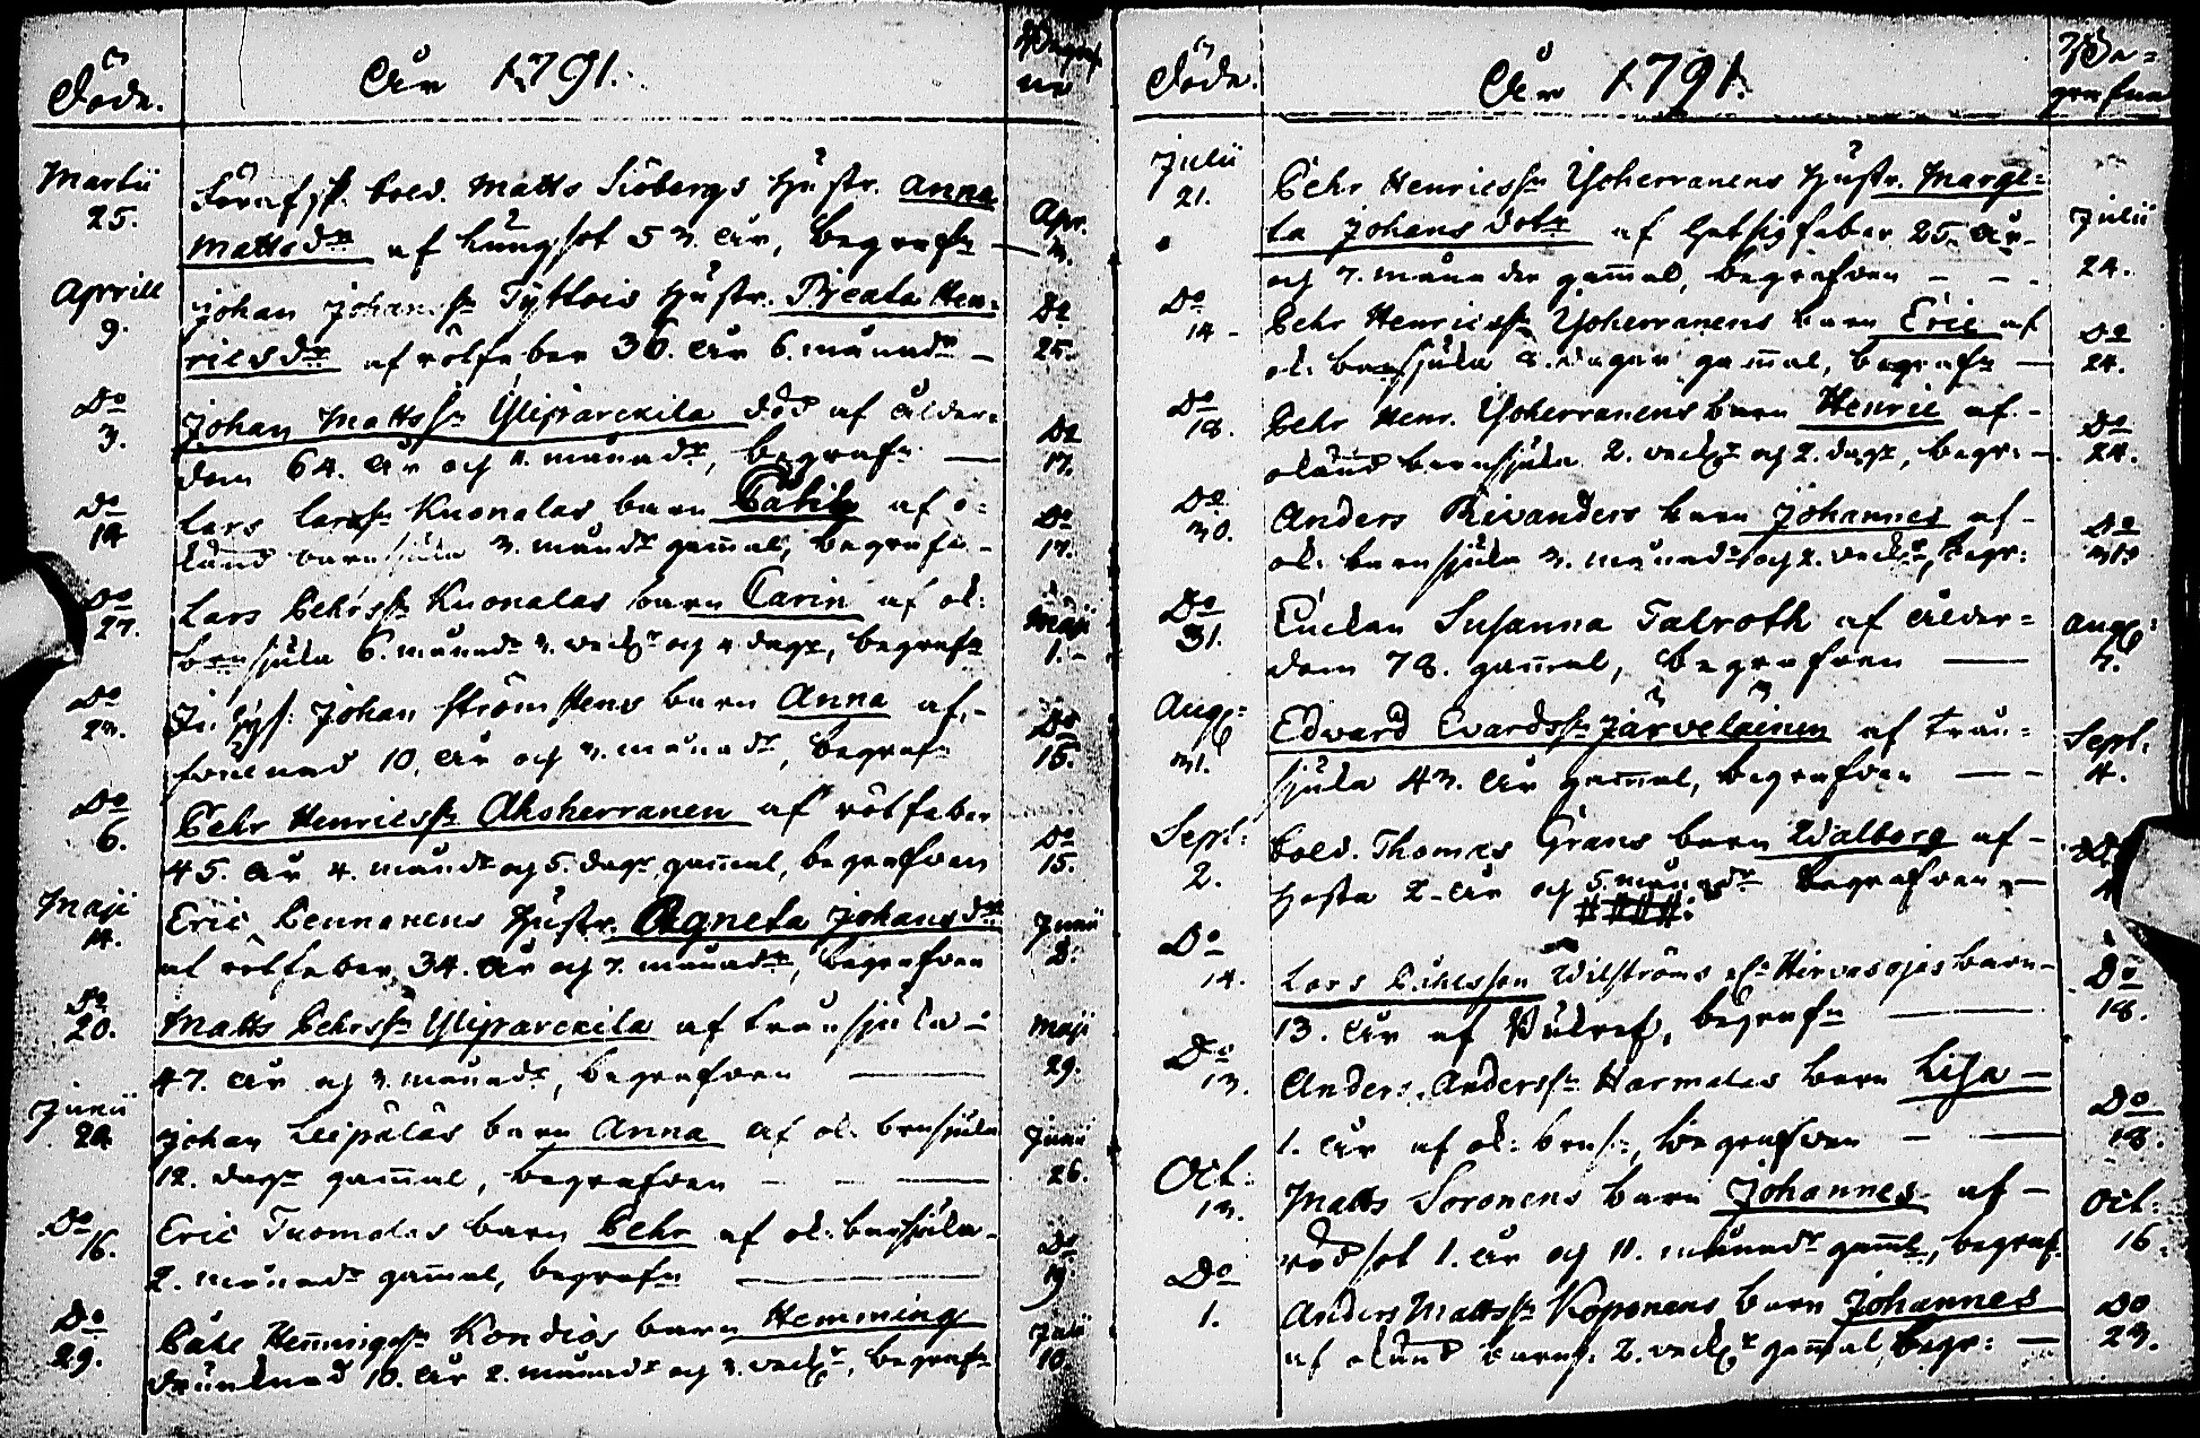 Döde.
År 1791.
Begraf
ne
Martii
25.
Förafsk. Sold. Matts Siöbergs Hustr. Anna
Mattsdr af lungsot 53. år, begrafn
Apr.
3.
Aprill
9.
Johan Johanss. Tyttöis Hustr. Beata Hen=
ricsdr af rötfeber 36. år 6. månadr
Do
25.
Do
3.
Johan Mattss. Yliparckila död af ålder=
dom 64. år och 11. månadr, begrafn
Do
17.
Do
14
Lars Larss. Kuonalas barn af o=
känd barnsjuka 3. månadr gammal, begrafn
Do
17.
Do
27.
Lars Pehrss. Kuonalas barn Carin af ok:
barnsjuka 6. månadr 3. veckr och 4 dagr, begrafn
Maji
1.
Do
23.
Johan Strömstens barn Anna af
10. år och 3. månadr, begrafn
Do
15.
Do
6.
Pehr Henricss. Ahoherranen af rötfeber
45. år 4. månadr och 5. dagr gammal, begrafven
Do
15.
Maji
14.
Eric Pennanens Hustr. Agneta Johansdr
af rötfeber 34. år och 7. månadr, begrafven
Junii
2.
Do
20.
Matts Pehrss. Yliparckila af trånsjuka
47. år och 3. månadr, begrafven
Maji
29.
Junii
24
Johan Leipäläs barn Anna af ok: barnsjuka
12. dagr gammal, begrafven
Junii
26.
Do
16.
Eric Tuomalas barn Pehr af ok: barnsjuka
2. månadr gammal, begrafn
Do
19.
Do
29.
Påhl Hemmingss. Kondios barn Hemming
drunknad 10. år 2. månadr och 3. veckr, begrafn
Julii
10.
Döde.
År 1791.
Be=
grafne
Julii
21.
Pehr Henricss. Yliherranens Hustr. Marge=
ta Johans dotr af hetsig feber 25. år
och 7. månader gammal, begrafven
Julii
24.
Do
14
Pehr Henricss. Yliherranens barn Eric af
ok. barnsjuka 8. dagar gammal, begrafn
Do
24.
Do
18.
Pehr Henr. Yliherranens barn Henric af
okänd barnsjuka 2. veckr och 2. dagr, begr:
Do
24.
Do
30.
Anders Rivanders barn Johannes af
ok: barnsjuka 3. månadr och 2. veckr, begr:
Do
31.
Do
31.
Enckan Susanna Talroth af ålder=
dom 78. gammal, begrafven
Aug:
7.
Aug:
31.
Edvard Evardss. Järveläinen af trån=
sjuka 43. år gammal, begrafven
Sept.
4.
Sept:
2.
Sold. Thomas Grans barn Walborg af
hosta 2. år och 5. månadr begrafven
Do
4
Do
14.
Lars Wilströms Hirvasojas barn
13. år af begrafn
Do
18.
Do
13.
Anders Anderss. Harmalas barn Lisa
1. år af ok: barns: begrafven
Do
18.
Oct:
13.
Matts Soronens barn Johannes af
rödsot 1. år och 11. månadr gaml, begraf
Oct:
16.
Do
1.
Anders Mattss. Koponens barn Johannes
af okänd barns: 2. veckr gammal, begr:
Do
23.